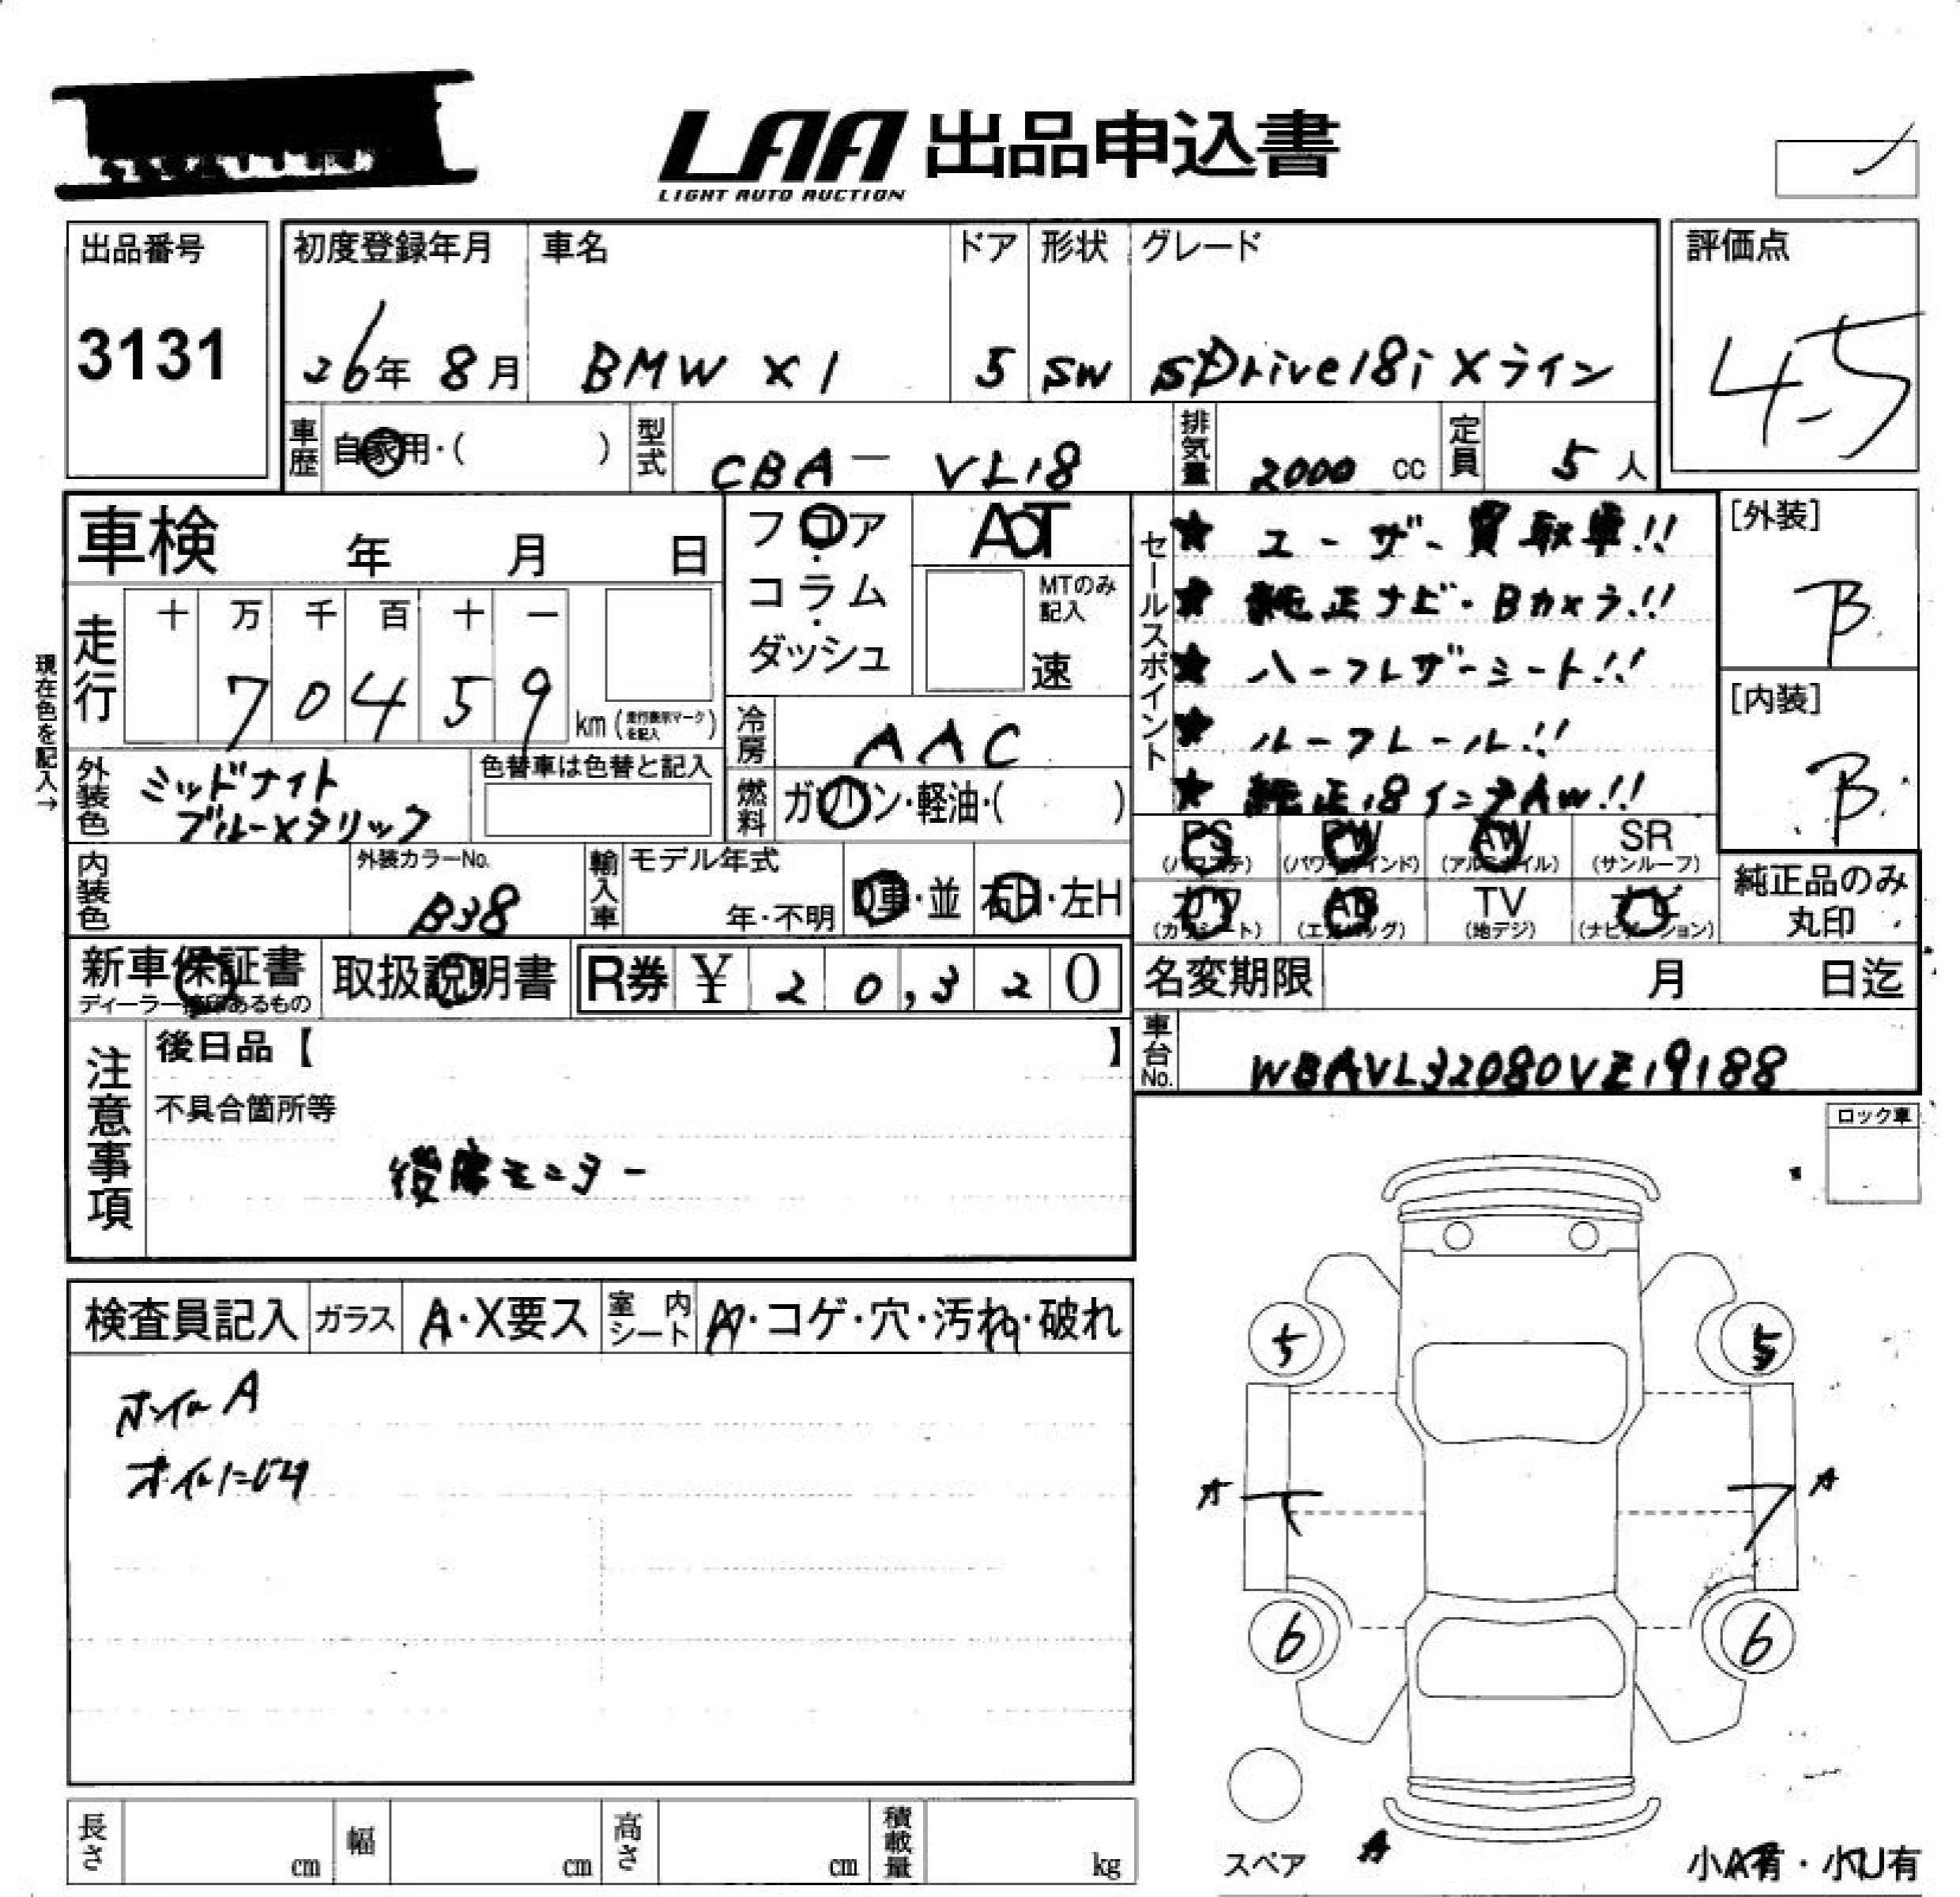 LAA 出品申込書
LIGHT AUTO AUCTION
出品番号
3131
初度登録年月
26年 8月
車名
BMW X1
ドア
5
形状
SW
グレード
sDrive18i Xライン
評価点
4.5
車歴
自家用・( )
型式
CBA-VL18
排気量
2000 cc
定員
5人
車検 年 月 日
フロア・コラム・ダッシュ
AT
MTのみ記入
速
セールスポイント
★ユーザー買取車!!
★純正ナビ・Bカメラ!!
★ハーフレザーシート!!
★ルーフレール!!
★純正18インチAW!!
[外装]
B
[内装]
B
現在色を記入→
走行
十 万 千 百 十 一
7 0 4 5 9
km (走行表示マークを記入)
冷房
AAC
外装色
ミッドナイト
ブルーメタリック
色替車は色替と記入
燃料
ガソリン・軽油・( )
PS (パワステ)
PW (パワーウインド)
AW (アルミホイル)
SR (サンルーフ)
カワ (カワシート)
AB (エアバッグ)
TV (地デジ)
ナビ (ナビゲーション)
純正品のみ丸印
内装色
外装カラーNo.
B38
輸入車
モデル年式
年・不明
D車・並
右H・左H
新車保証書
ディーラー捺印あるもの
取扱説明書
R券 ¥ 20,320
名変期限 月 日迄
車台No.
WBAVL32080VZ19188
注意事項
後日品【 】
不具合箇所等
後席モニター
ロック車
検査員記入
ガラス
A・X要ス
室内シート
・コゲ・穴・汚れ・破れ
ホイルA
オイルにじみ
5
5
A
A
6
6
スペア
A
小A有・小U有
長さ cm
幅 cm
高さ cm
積載量 kg